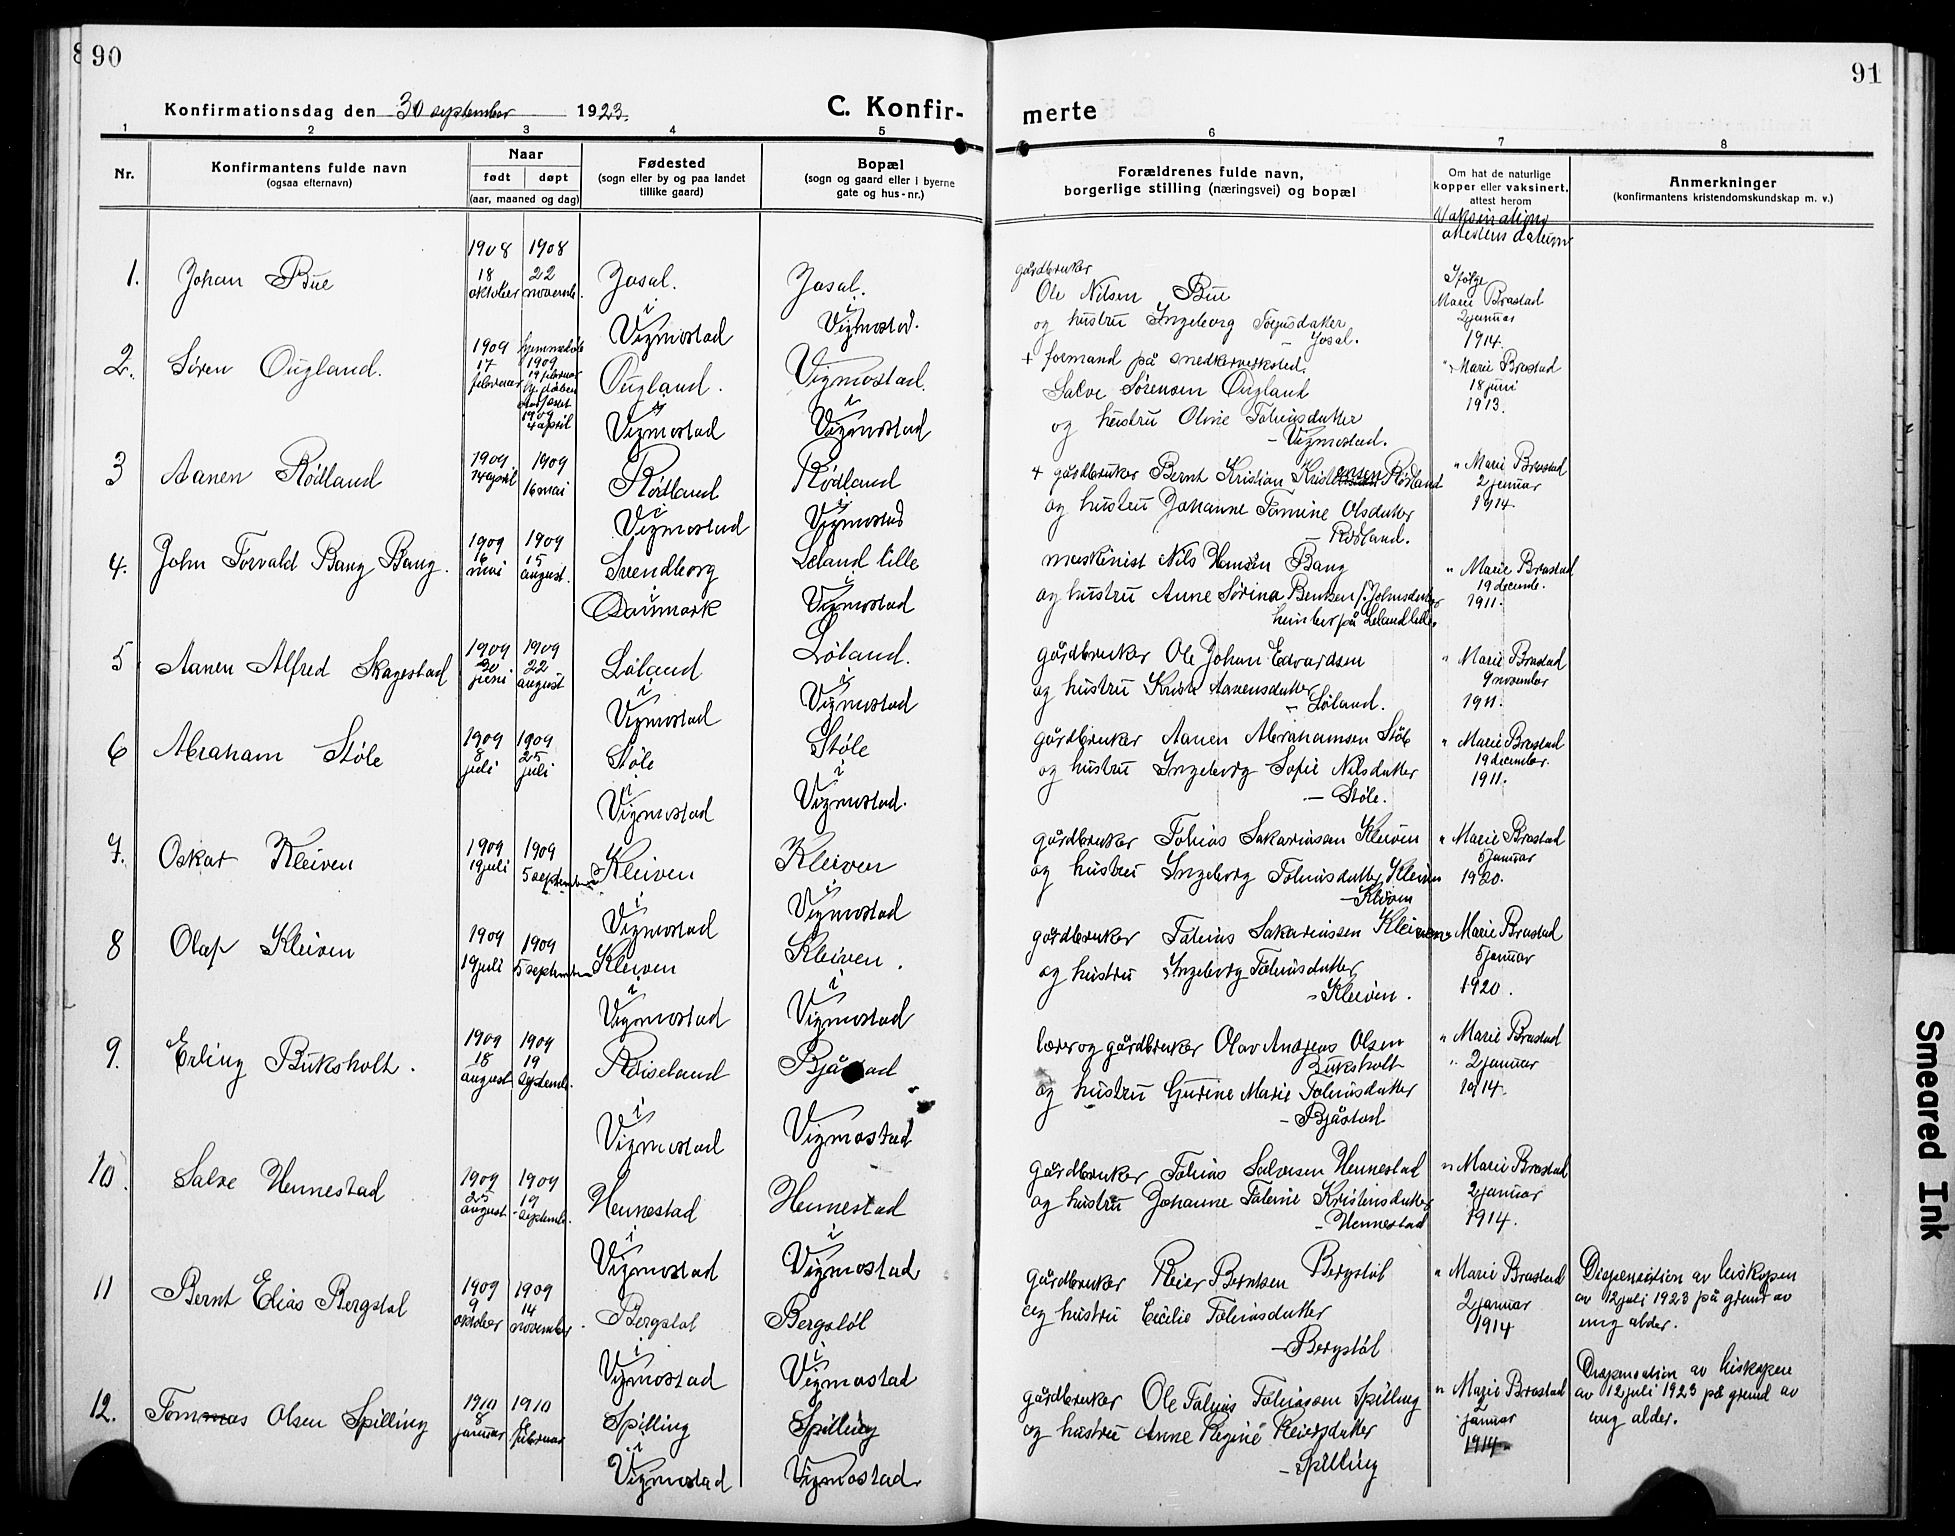 90
Konfirmationsdag den 30 september 1923.
C. Konfir-
1 2 3 4 5
Nr.
Konfirmantens fulde navn
(ogsaa efternavn)
Naar
født døpt
(aar, maaned og dag)
Fødested
(sogn eller by og paa landet
tillike gaard)
Bopæl
(sogn og gaard eller i byerne
gate og hus-nr.)
1. Johan Bue
1908 18 oktober
1908 22 novemb.
Josal. i Vigmostad
Josal. i Vigmostad.
2. Søren Ougland.
1909 17 februar
hjemmedøbt 1909 19 februar
1909 4 april
Ougland. i Vigmostad
Vigmostad. i Vigmostad
3 Aanen Rødland
1909 14 april
1909 16 mai
Rødland i Vigmostad
Rødland i Vigmostad
4. John Torvald Bang Bang.
1909 16 mai
1909 15 august.
Svendborg i Danmark
Leland lille i Vigmostad
5 Aanen Alfred Skagestad
1909 20 juni
1909 22 august
Løland i Vigmostad
Løland. i Vigmostad
6 Abraham Støle
1909 8 juli
1909 25 juli
Støle i Vigmostad
Støle i Vigmostad.
7. Oskar Kleiven
1909 19 juli
1909 5 september
Kleiven i Vigmostad
Kleiven i Vigmostad
8 Olaf Kleiven
1909 19 juli
1909 5 september
Kleiven i Vigmostad
Kleiven. i Vigmostad
9. Erling Buksholt.
1909 18 august
1909 19 septemb.
Røiseland i Vigmostad
Bjåstad Vigmostad
10. Salve Hennestad
1909 25 august
1909 19 septemb.
Hennestad i Vigmostad
Hennestad i Vigmostad
11 Bernt Elias Bergstøl
1909 9 oktober
1909 14 november.
Bergstøl i Vigmostad
Bergstøl i Vigmostad
12. Tommas Olsen Spilling
1910 8 januar
1910 6 februar
Spilling i Vigmostad
Spilling Vigmostad.
91
merte
6 7 8
Forældrenes fulde navn,
borgerlige stilling (næringsvei) og bopæl
Om hat de naturlige
kopper eller vaksinert,
attest herom
Vaksinations
attestens datum
Anmerkninger
(konfirmantens kristendomskundskap m. v.)
gårdbruker
Ole Nilsen Bue
og hustru Ingeborg Torjusdatter
- Josal.
Ifølge
Marie Brastad
2 januar
1914.
+ formand på snedkerverksted.
Salve Sørensen Ougland
og hustru Oline Tobiasdatter
- Vigmostad.
" Marie Brastad
18 juni
1913.
+ gårdbruker Bernt Kristian Kristensen Rødland
og hustru Johanne Tomine Olsdatter
- Rødland.
" Marie Brastad
2 januar
1914.
maskinist Nils Hansen Bang
og hustru Anne Sørina Bentsen f. Johnsdatter
hun bor på Leland lille.
" Marie Brastad
19 decemb.
1911.
gårdbruker Ole Johan Edvardsen
og hustru Kristi Aanensdatter
- Løland.
" Marie Brastad
9 november
1911.
gårdbruker Aanen Abrahamsen Støle
og hustru Ingeborg Sofie Nilsdatter
- Støle.
" Marie Brastad
19 december.
1911.
gårdbruker Tobias Sakariassen Kleiven
og hustru Ingeborg Tobiasdatter Kleiven
- Kleiven
" Marie Brastad
5 januar
1920.
gårdbruker Tobias Sakariassen Kleiven
og hustru Ingeborg Tobiasdatter
- Kleiven.
" Marie Brastad
5 januar
1920.
lærer og gårdbruker Olav Andreas Olsen
Buksholt
og hustru Gurine Marie Tobiasdatter
- Bjåstad
" Marie Brastad
" 2 januar
1914.
gårdbruker Tobias Salvesen Hennestad
og hustru Johanne Talene Kristensdatter
- Hennestad
" Marie Brastad
2 januar
1914.
gårdbruker Reier Berntsen Bergstøl
og hustru Cecilie Tobiasdatter
- Bergstøl
" Marie Brastad
2 januar
1914
Dispensation av biskopen
av 12 juli 1923 på grund av
ung alder.
gårdbruker Ole Tobias Tobiassen Spilling
og hustru Anne Regine Reiersdatter
- Spilling
" Marie Brastad
2 januar
1914
Dispensation av biskopen
av 12 juli 1923 på grund av
ung alder.
Smeared Ink